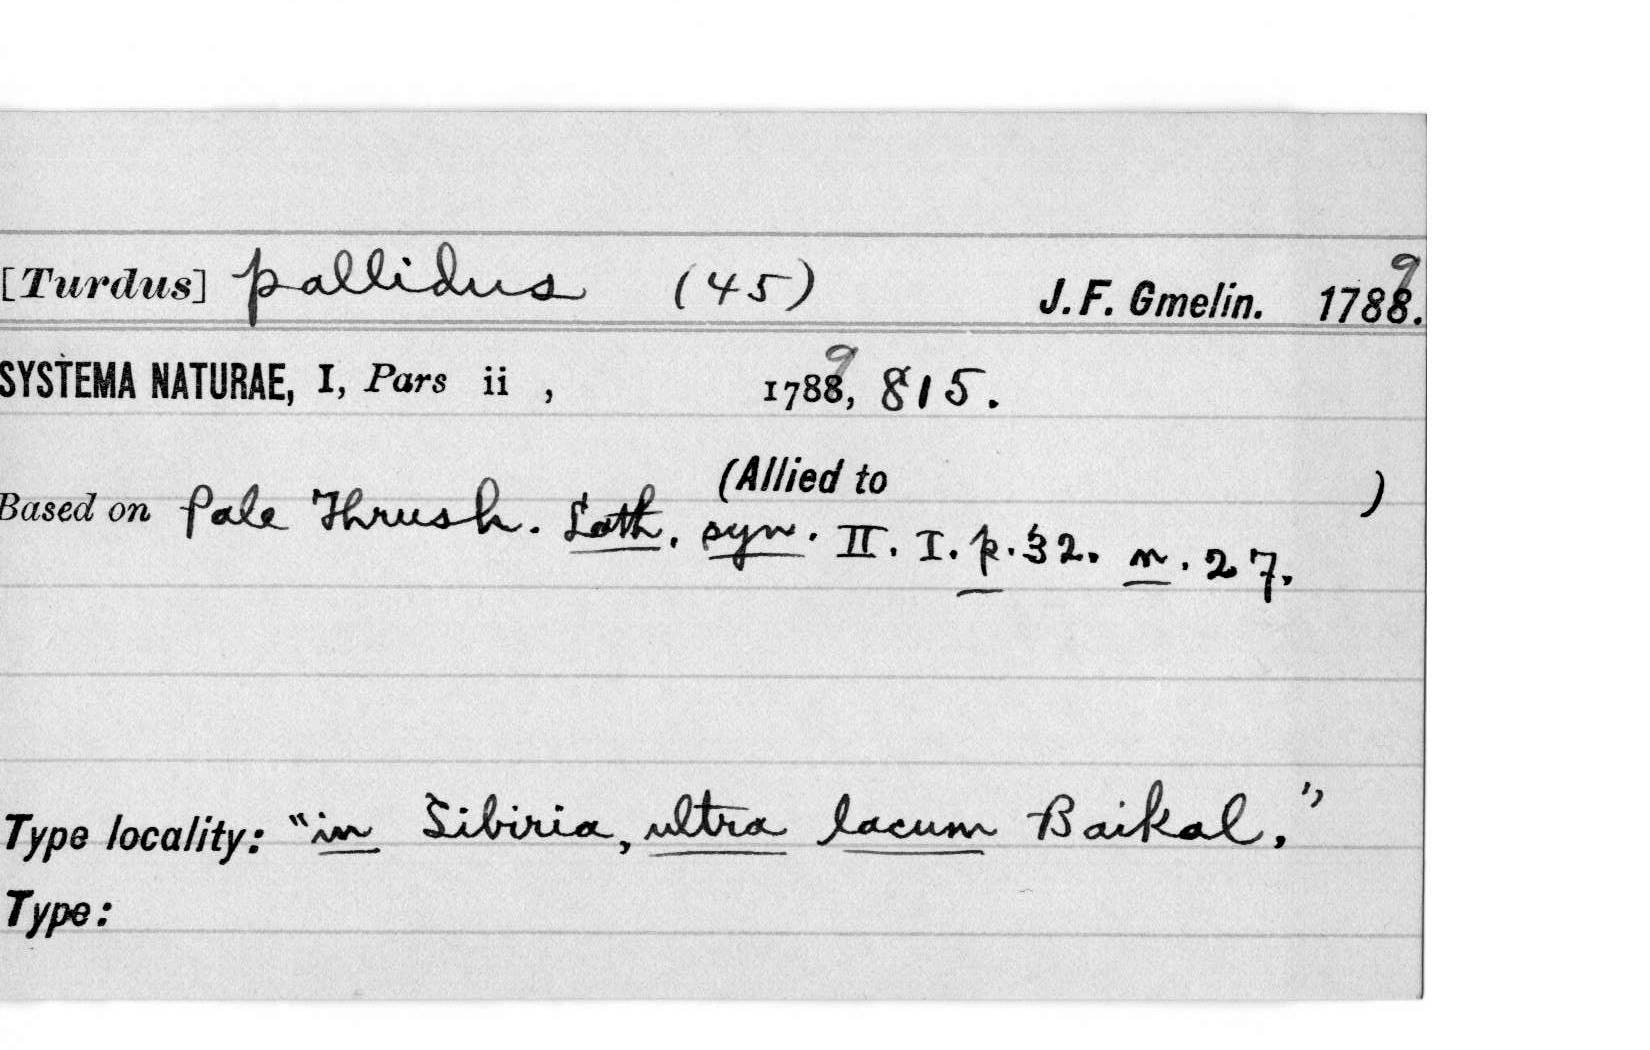 [Turdus] pallidus (45) J. F. Gmelin. 1788. 9
SYSTEMA NATURAE, I, Pars ii , 1788, 9 815.
(Allied to )
Based on Pale Thrush. Lath. syn. II. I. p. 32. n. 27.
Type locality: "in Sibiria, ultra lacum Baikal,"
Type: